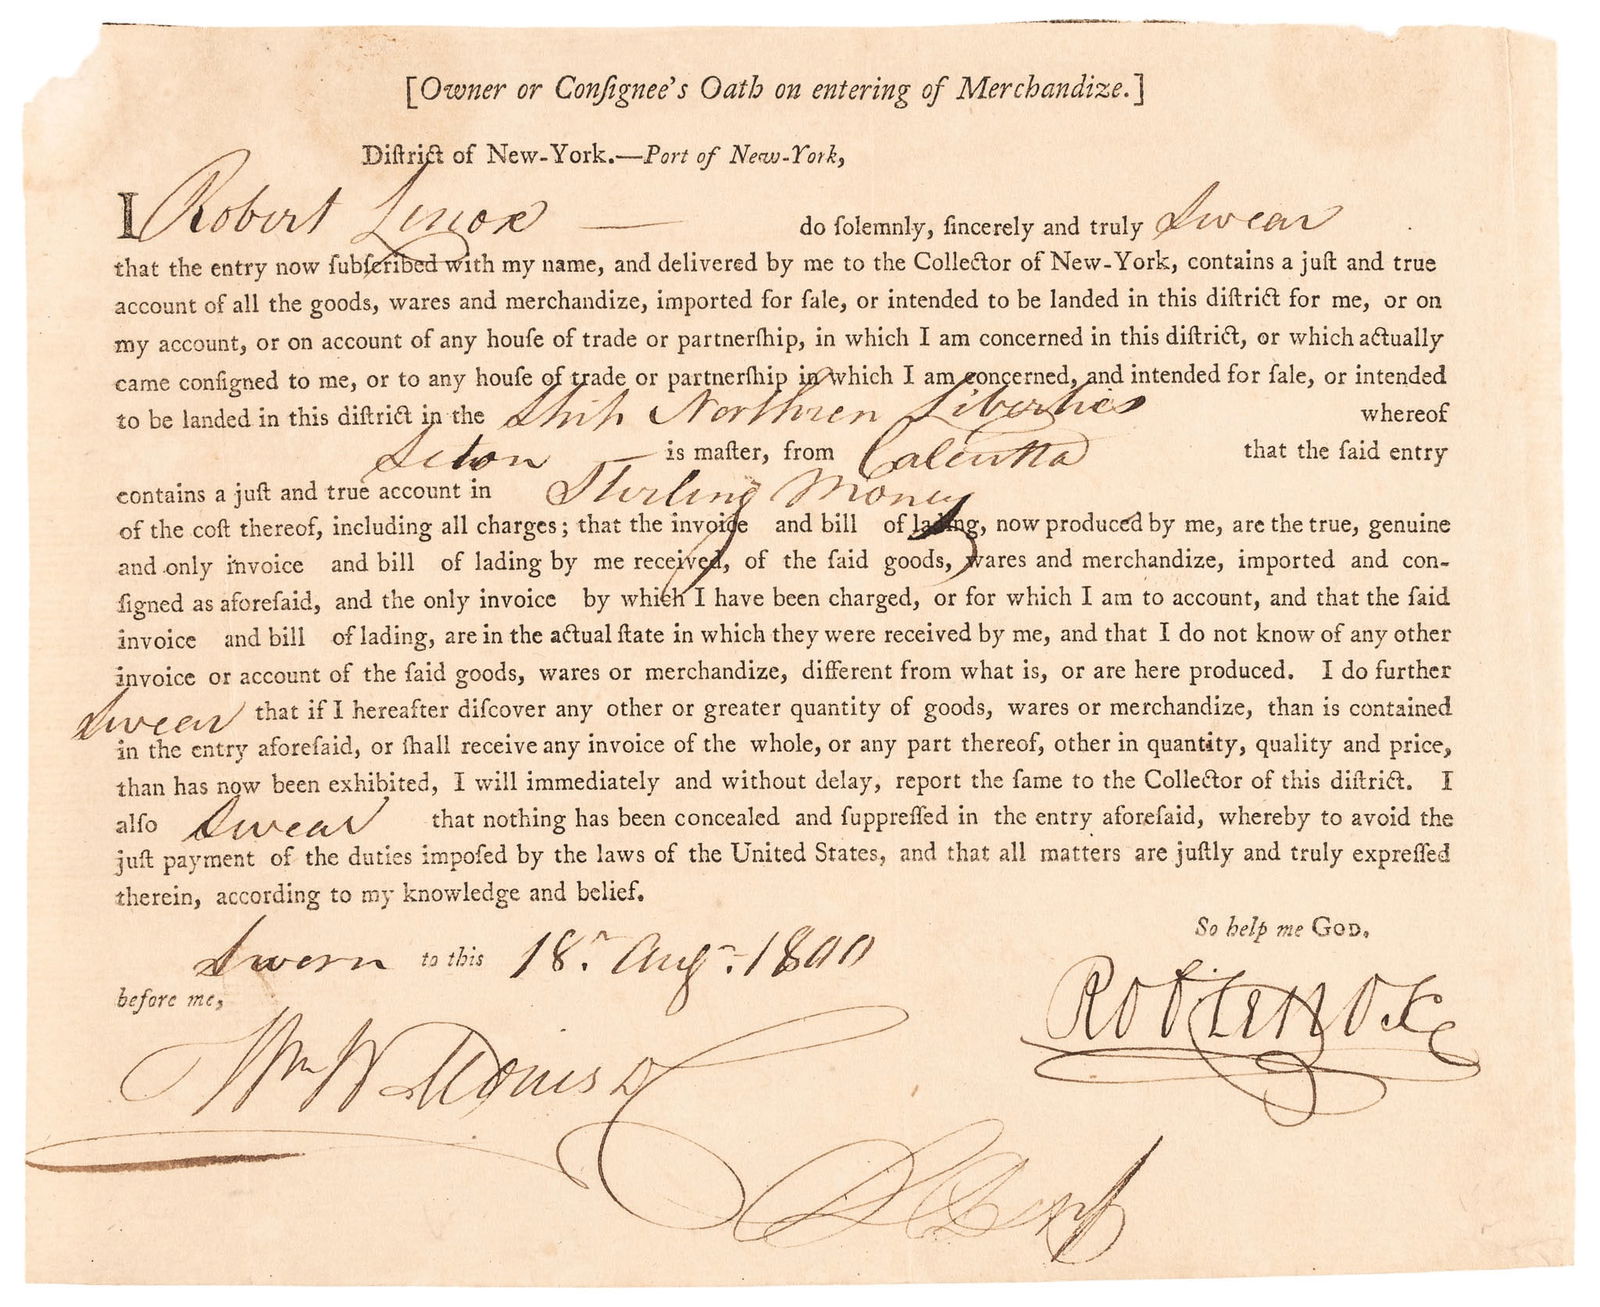 [Owner or Conſignee's Oath on entering of Merchandize.]
Diſtrict of New-York.—Port of New-York,
I Robert Lenox — do ſolemnly, ſincerely and truly Swear
that the entry now ſubſcribed with my name, and delivered by me to the Collector of New-York, contains a juſt and true
account of all the goods, wares and merchandize, imported for ſale, or intended to be landed in this diſtrict for me, or on
my account, or on account of any houſe of trade or partnerſhip, in which I am concerned in this diſtrict, or which actually
came conſigned to me, or to any houſe of trade or partnerſhip in which I am concerned, and intended for ſale, or intended
to be landed in this diſtrict in the Ship Northren Liberties whereof
Seton — is maſter, from Calcutta that the ſaid entry
contains a juſt and true account in Sterling Money
of the coſt thereof, including all charges; that the invoice and bill of lading, now produced by me, are the true, genuine
and only invoice and bill of lading by me received, of the ſaid goods, wares and merchandize, imported and con-
ſigned as aforeſaid, and the only invoice by which I have been charged, or for which I am to account, and that the ſaid
invoice and bill of lading, are in the actual ſtate in which they were received by me, and that I do not know of any other
invoice or account of the ſaid goods, wares or merchandize, different from what is, or are here produced. I do further
Swear that if I hereafter diſcover any other or greater quantity of goods, wares or merchandize, than is contained
in the entry aforeſaid, or ſhall receive any invoice of the whole, or any part thereof, other in quantity, quality and price,
than has now been exhibited, I will immediately and without delay, report the ſame to the Collector of this diſtrict. I
alſo Swear that nothing has been concealed and ſuppreſſed in the entry aforeſaid, whereby to avoid the
juſt payment of the duties impoſed by the laws of the United States, and that all matters are juſtly and truly expreſſed
therein, according to my knowledge and belief.
So help me GOD,
Sworn to this 18. Aug. 1800
before me,
Rob Lenox